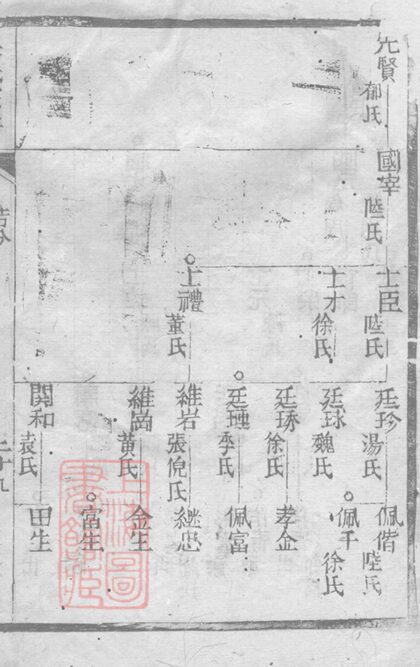 先賢 郁氏
國宰 陸氏
士臣 陸氏
廷珍 湯氏
佩偕 陸氏
士才 徐氏
廷球 魏氏
佩千 徐氏
廷琢 徐氏
孝金
廷璉 季氏
佩富
上禮 董氏
維岩 張倪氏
繼忠
維崗 黃氏
金生
富生
関和 袁氏
田生
二十九
上海圖書館藏